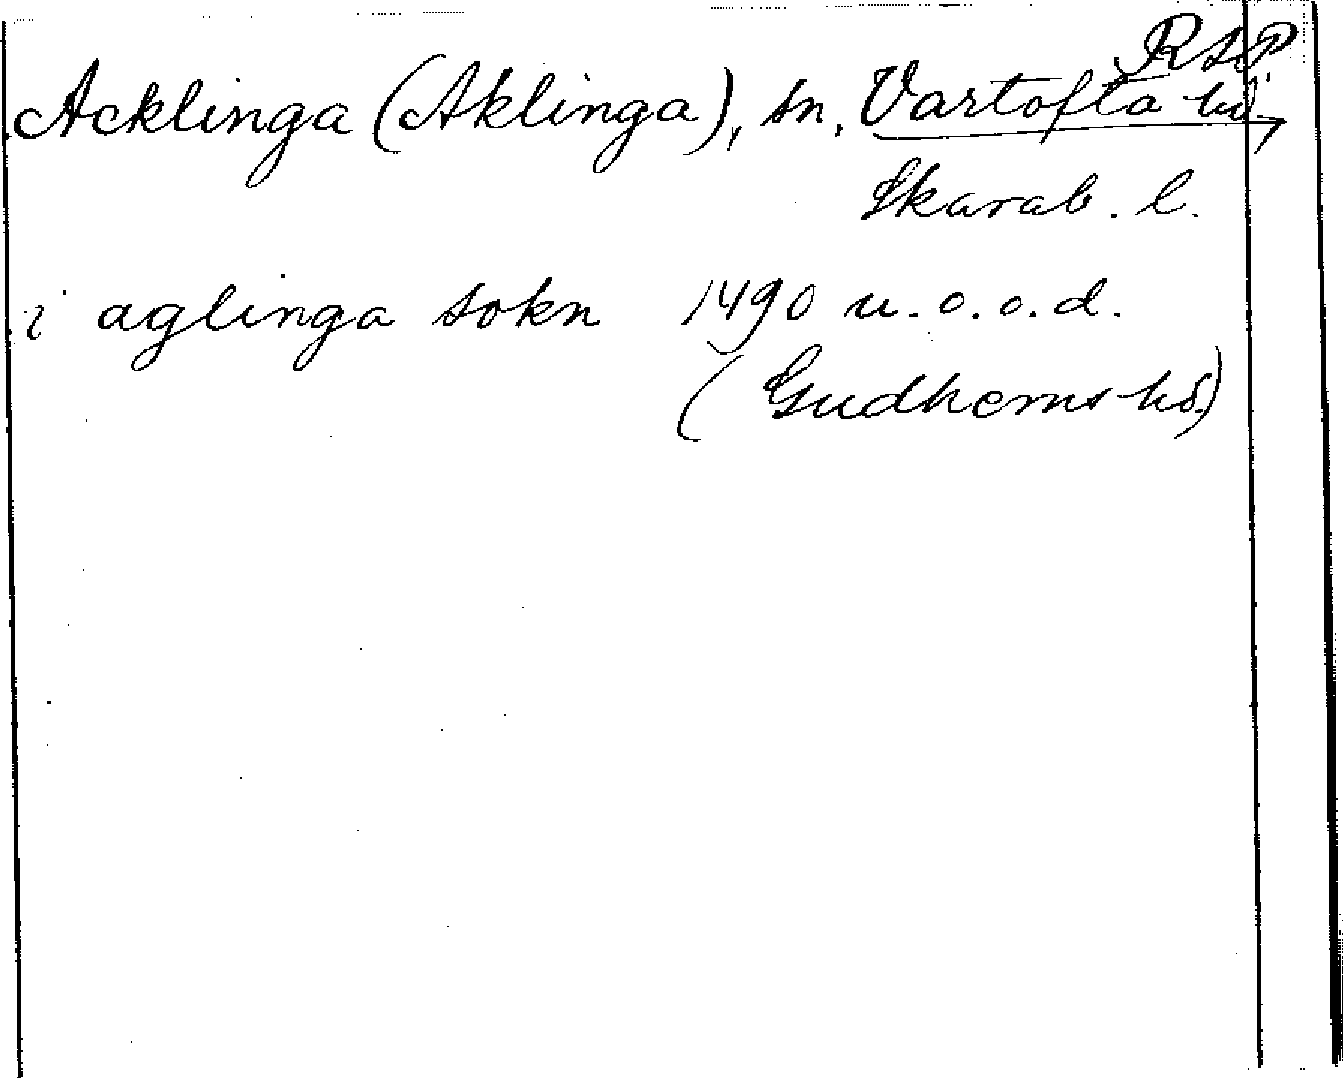 RAP
Acklinga (Aklinga), sn, Vartofta hd,
Skarab. l.
i aglinga sokn 1490 u. o. o. d.
(Gudhems hd)